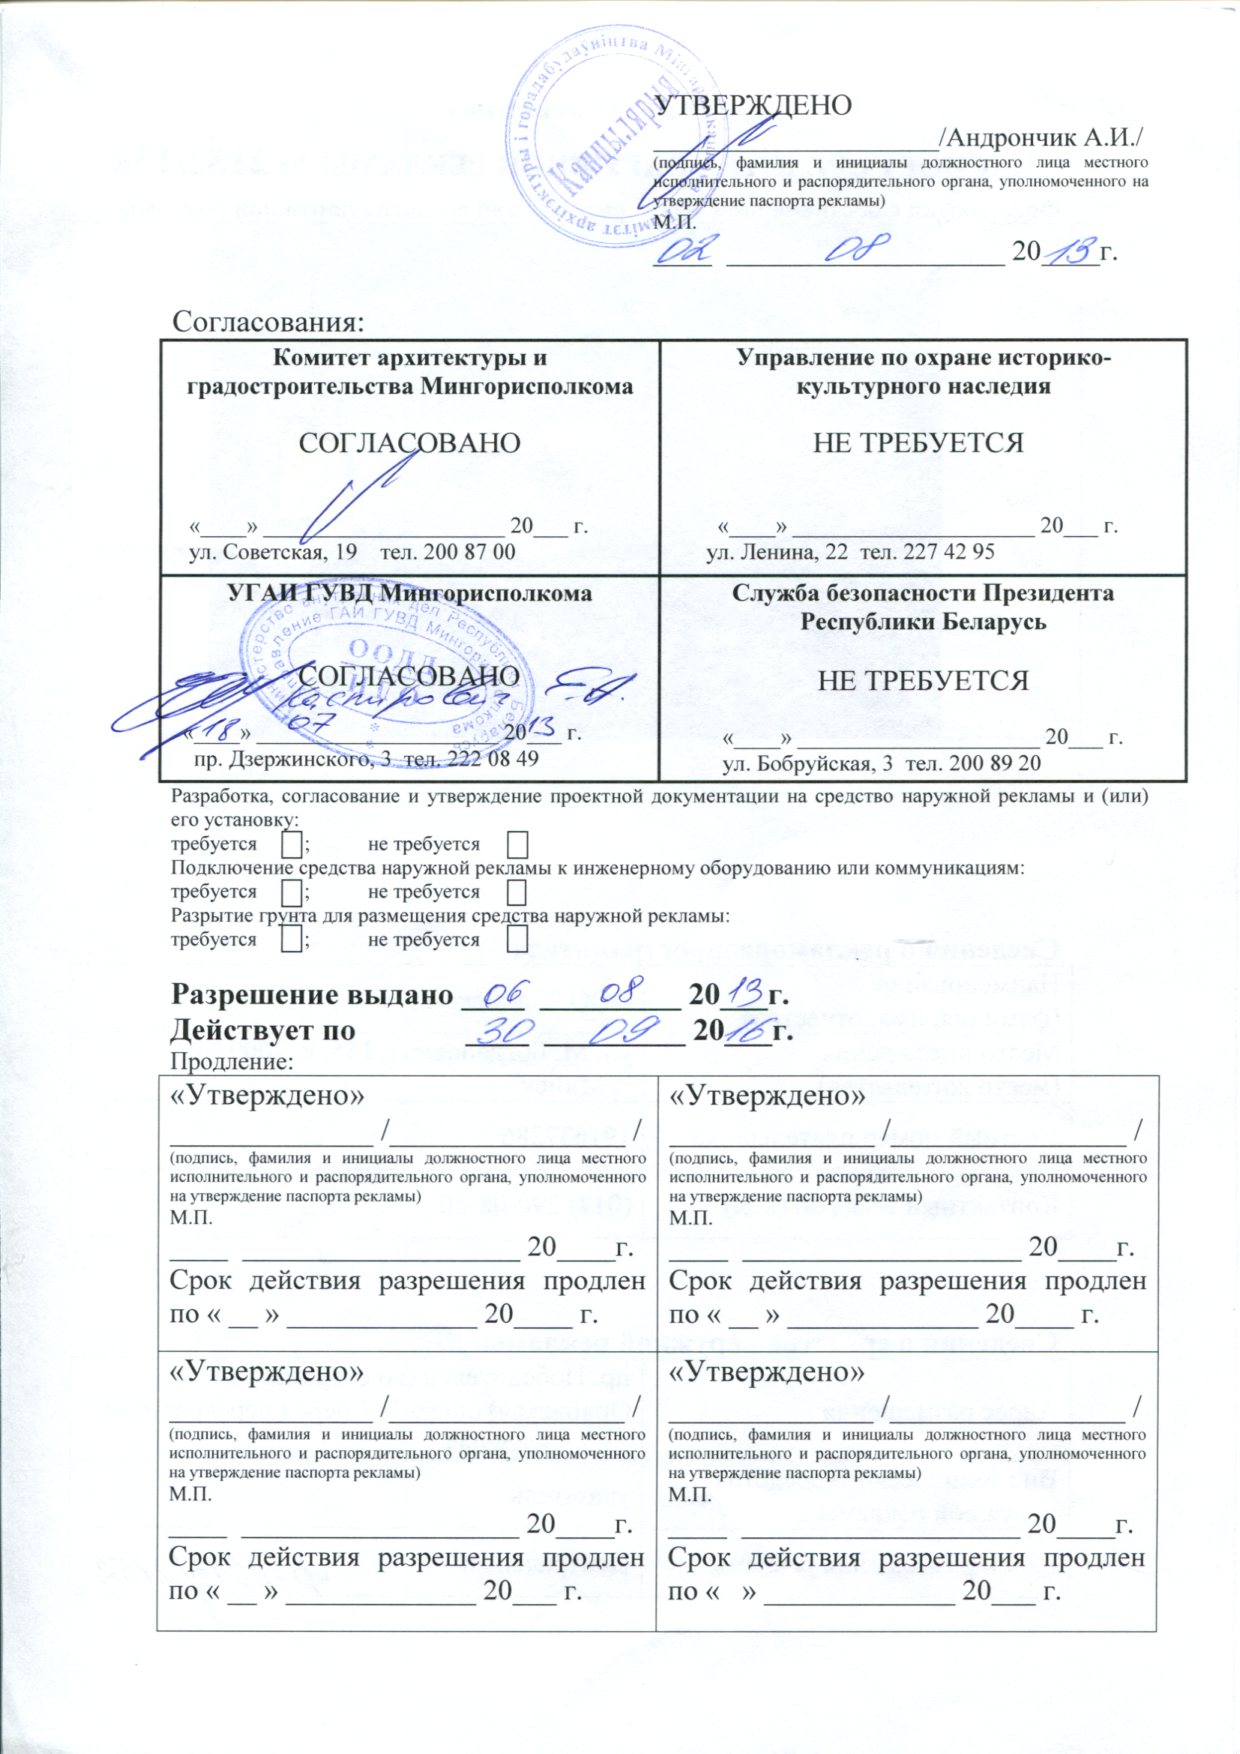 Канцылярыя
УТВЕРЖДЕНО
____________________/Андрончик А.И./
(подпись, фамилия и инициалы должностного лица местного
исполнительного и распорядительного органа, уполномоченного на
утверждение паспорта рекламы)
М.П.
02 08 2013г.
Согласования:
Комитет архитектуры и
градостроительства Мингорисполкома
СОГЛАСОВАНО
«____» ____________________ 20___ г.
ул. Советская, 19 тел. 200 87 00
Управление по охране историко-
культурного наследия
НЕ ТРЕБУЕТСЯ
«____» ____________________ 20___ г.
ул. Ленина, 22 тел. 227 42 95
УГАИ ГУВД Мингорисполкома
ООДД
СОГЛАСОВАНО
«18» 07 2013 г.
пр. Дзержинского, 3 тел. 222 08 49
Служба безопасности Президента
Республики Беларусь
НЕ ТРЕБУЕТСЯ
«____» ____________________ 20___ г.
ул. Бобруйская, 3 тел. 200 89 20
Разработка, согласование и утверждение проектной документации на средство наружной рекламы и (или)
его установку:
требуется ; не требуется
Подключение средства наружной рекламы к инженерному оборудованию или коммуникациям:
требуется ; не требуется
Разрытие грунта для размещения средства наружной рекламы:
требуется ; не требуется
Разрешение выдано 06 08 2013г.
Действует по 30 09 2016г.
Продление:
«Утверждено»
______________ /________________ /
(подпись, фамилия и инициалы должностного лица местного
исполнительного и распорядительного органа, уполномоченного
на утверждение паспорта рекламы)
М.П.
____ ___________________ 20____г.
Срок действия разрешения продлен
по « __ » _____________ 20____ г.
«Утверждено»
______________ /________________ /
(подпись, фамилия и инициалы должностного лица местного
исполнительного и распорядительного органа, уполномоченного
на утверждение паспорта рекламы)
М.П.
____ ___________________ 20____г.
Срок действия разрешения продлен
по « __ » _____________ 20____ г.
«Утверждено»
______________ /________________ /
(подпись, фамилия и инициалы должностного лица местного
исполнительного и распорядительного органа, уполномоченного
на утверждение паспорта рекламы)
М.П.
____ ___________________ 20____г.
Срок действия разрешения продлен
по « __ » _____________ 20___ г.
«Утверждено»
______________ /________________ /
(подпись, фамилия и инициалы должностного лица местного
исполнительного и распорядительного органа, уполномоченного
на утверждение паспорта рекламы)
М.П.
____ ___________________ 20____г.
Срок действия разрешения продлен
по « » _____________ 20___ г.